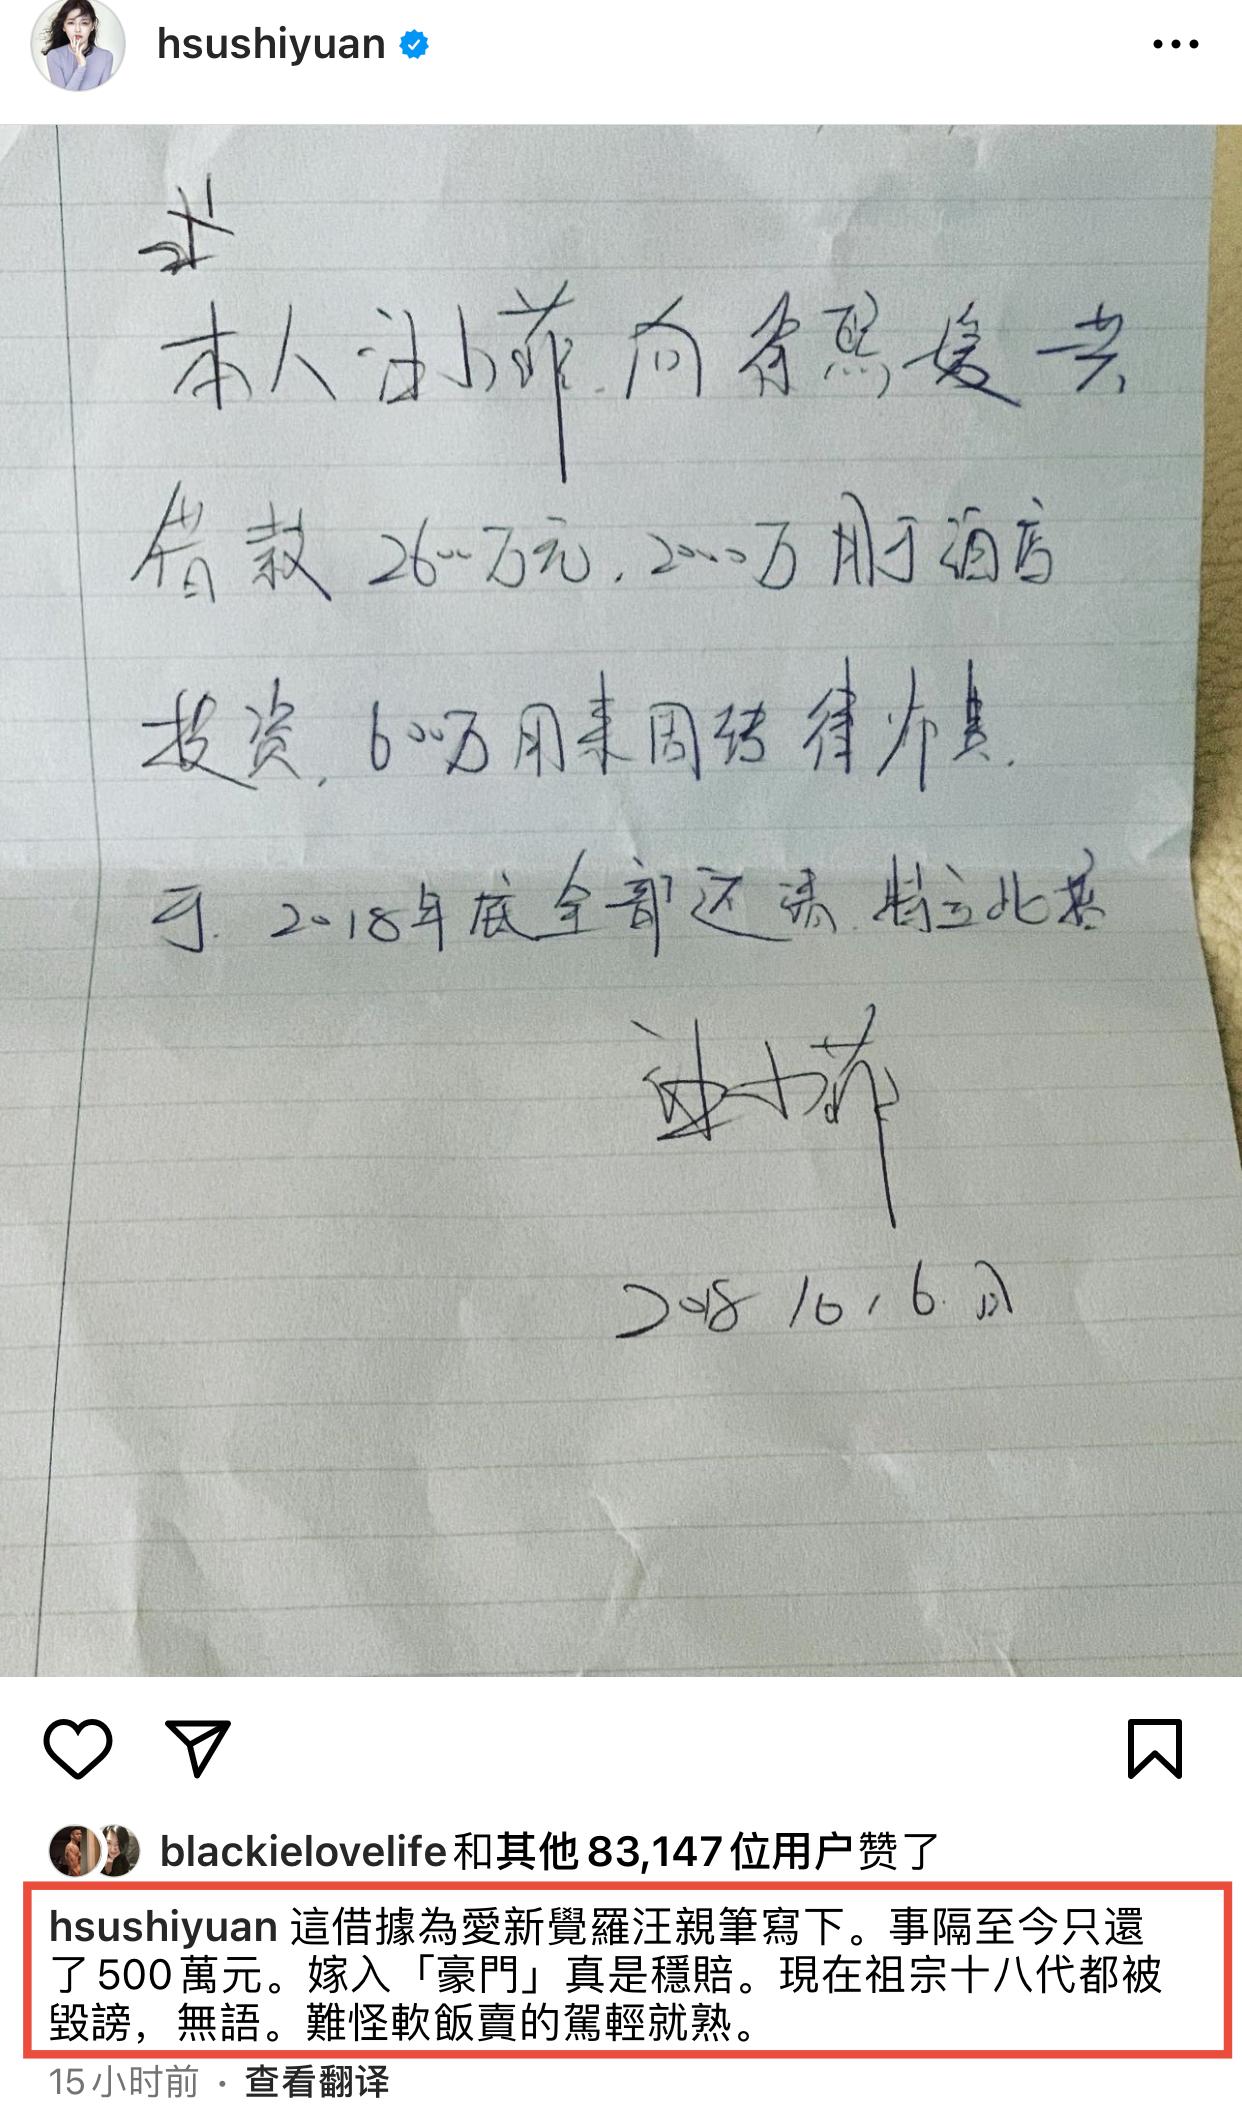 hsushiyuan
本人汪小菲.向徐熙媛共
借款2600万元，2000万用于酒店
投资，600万用来周转律师费.
于.2018年底全部还清.特立此据
汪小菲
2018 10,6.
hsushiyuan 這借據為愛新覺羅汪親筆寫下。事隔至今只還
了500萬元。嫁入「豪門」真是穩賠。現在祖宗十八代都被
毀謗，無語。難怪軟飯賣的駕輕就熟。
blackielovelife和其他 83,147 位用户赞了
15小时前 · 查看翻译